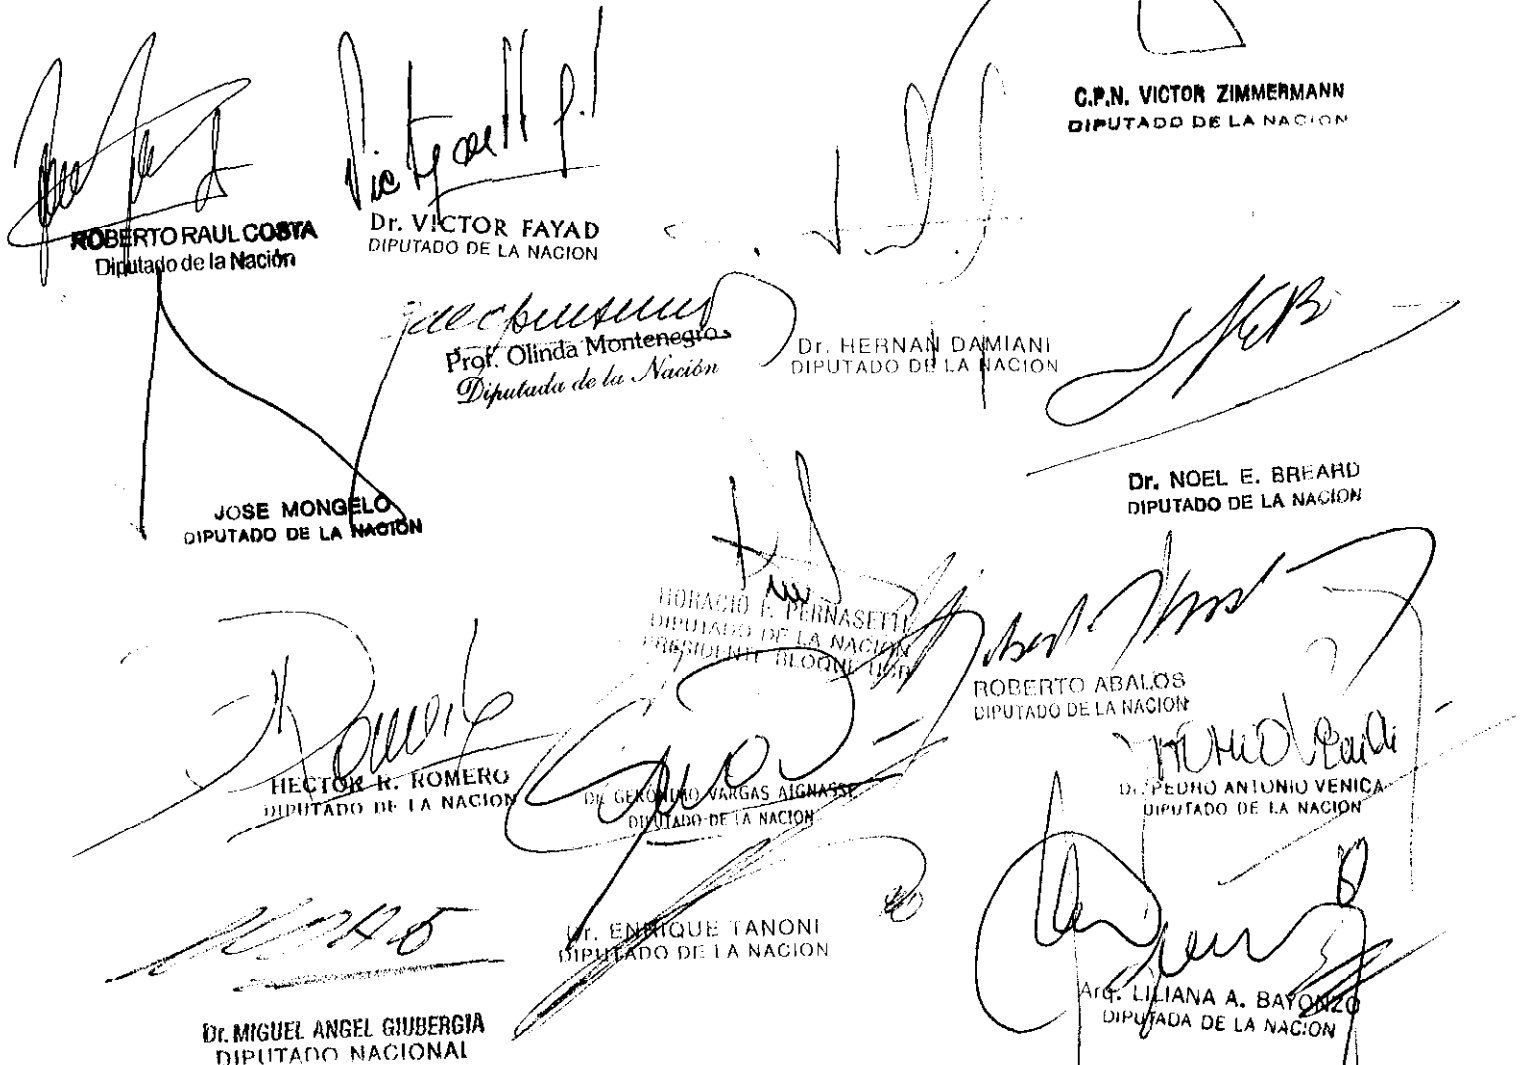 C.P.N. VICTOR ZIMMERMANN
DIPUTADO DE LA NACION
ROBERTO RAUL COSTA
Diputado de la Nación
Dr. VICTOR FAYAD
DIPUTADO DE LA NACION
Prof. Olinda Montenegro
Diputada de la Nación
Dr. HERNAN DAMIANI
DIPUTADO DE LA NACION
Dr. NOEL E. BREARD
DIPUTADO DE LA NACION
JOSE MONGELO
DIPUTADO DE LA NACION
HORACIO F. PERNASETTI
DIPUTADO DE LA NACION
PRESIDENTE BLOQUE UCR
ROBERTO ABALOS
DIPUTADO DE LA NACION
HECTOR R. ROMERO
DIPUTADO DE LA NACION
Dr. GERONIMO VARGAS AIGNASSE
DIPUTADO DE LA NACION
Dr. PEDRO ANTONIO VENICA
DIPUTADO DE LA NACION
Dr. ENRIQUE TANONI
DIPUTADO DE LA NACION
Arq. LILIANA A. BAYONZO
DIPUTADA DE LA NACION
Dr. MIGUEL ANGEL GIUBERGIA
DIPUTADO NACIONAL